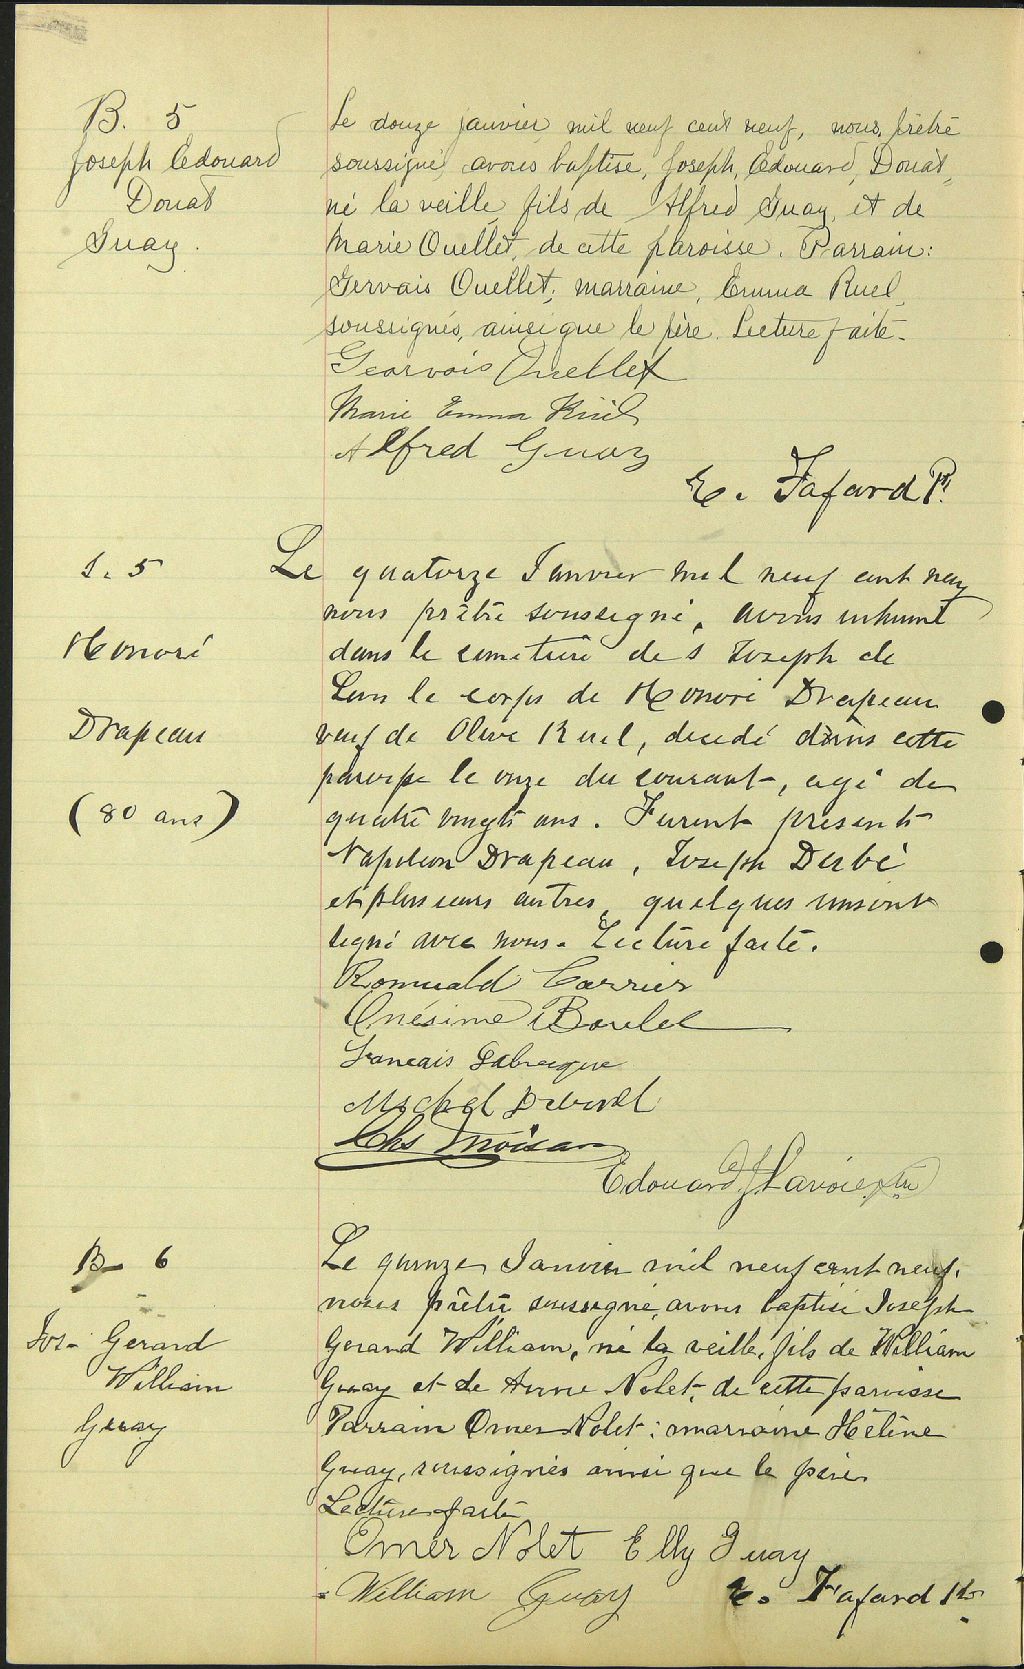 B. 5
Joseph Edouard
Donat
Guay.
Le douze janvier mil neuf cent neuf, nous, prêtre
soussigné, avons baptisé, Joseph, Edouard, Donat,
né la veille, fils de Alfred Guay, et de
Marie Ouellet, de cette paroisse. Parrain:
Gervais Ouellet; marraine, Emma Ruel
soussignés, ainsi que le père. Lecture faite.
Gearvois Ouellet
Marie Emma Ruel
Alfred Guay
E. Fafard P.
S. 5
Honoré
Drapeau
(80 ans)
Le quatorze Janvier mil neuf cent neuf
nous prêtre soussigné, avons inhumé
dans le cimetière de S Joseph de
Levis le corps de Honoré Drapeau
veuf de Olive Ruel, decedé dans cette
paroisse le onze du courant, agé de
quatre vingts ans. Furent présents
Napoléon Drapeau, Joseph
et plusieurs autres, quelques uns ont
signé avec nous. Lecture faite.
Romuald Carrier
Onésime Boulet
Francais Labrecque
Michel
Chs Moisan
Edouard J Lavoie, ptre
B 6
Jos. Gerard
William
Guay
Le quinze Janvier mil neuf cent neuf.
nous prêtre soussigné, avons baptisé Joseph
Gerard William, né la veille, fils de William
Guay et de Anne Nolet, de cette paroisse
Parrain Omer Nolet; marraine Hélène
Guay, soussignés ainsi que le père.
Lecture faite
Omer Nolet Elly Guay
William Guay E. Fafard Ptr